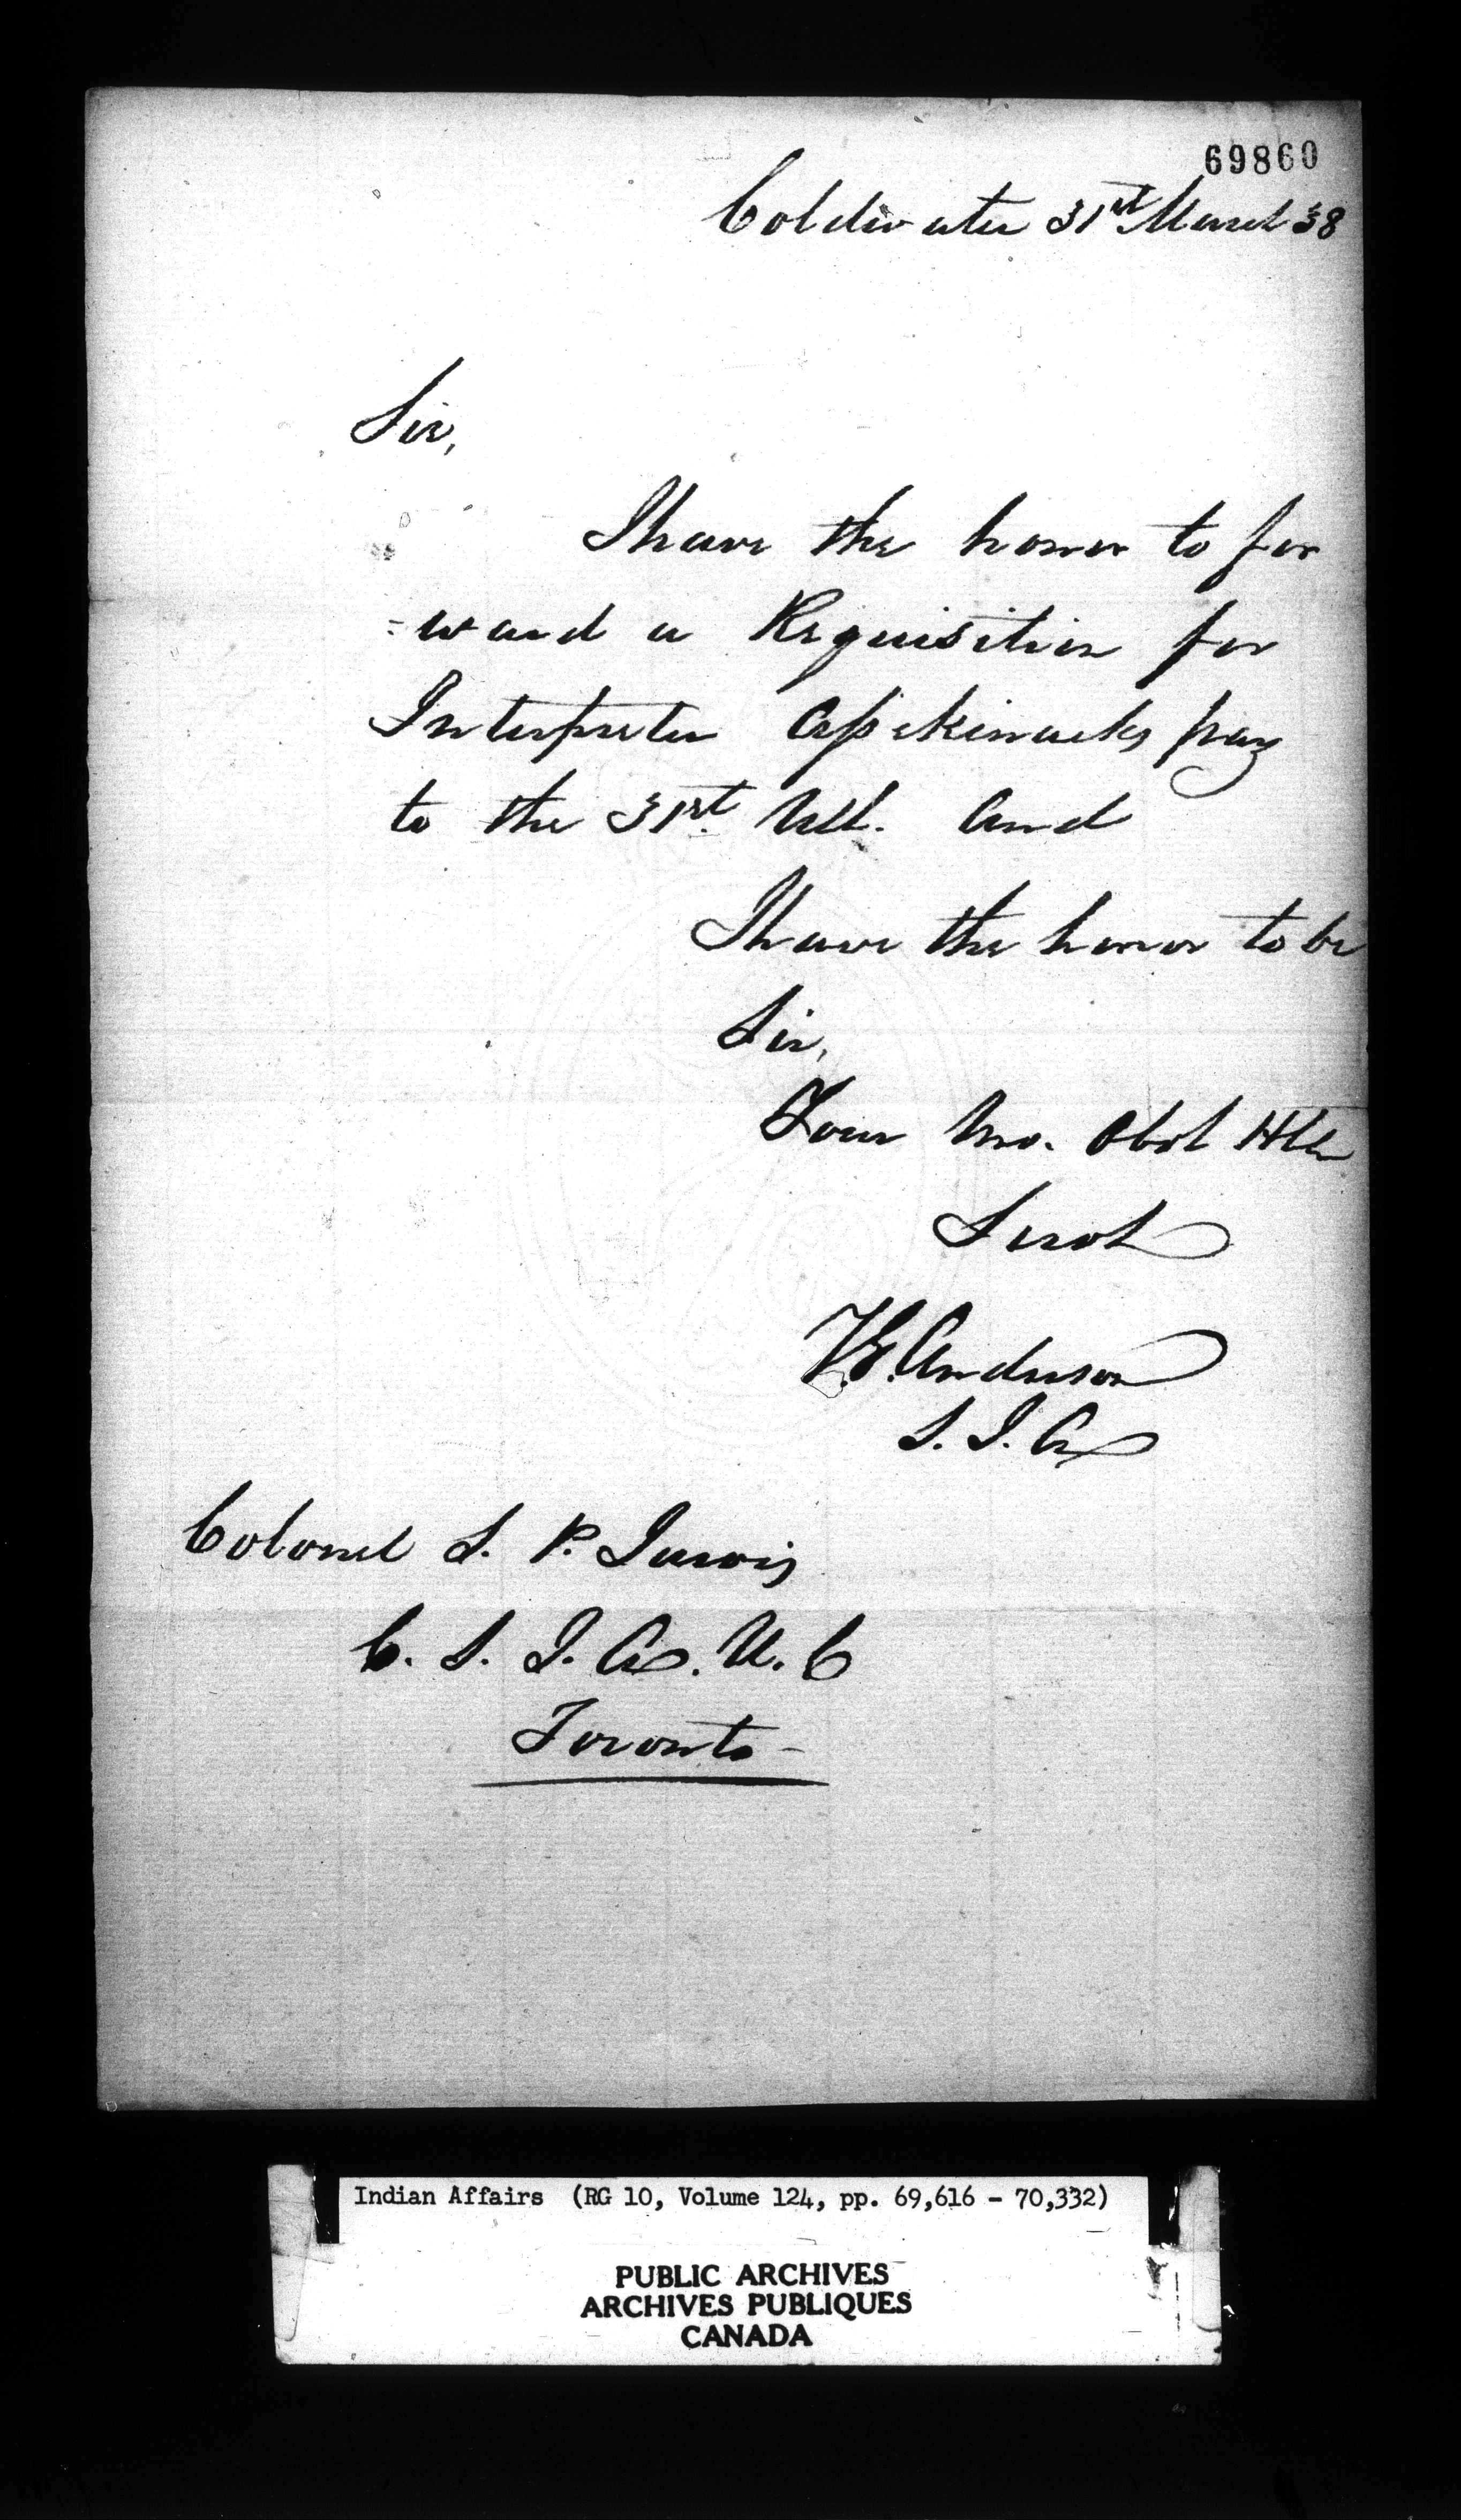 69860
Coldwater 31st March 38
Sir,
I have the honor to for
=ward a Requisition for
Interpreter Assikinacks pay
to the 31st. Ult. And
I have the honor to be
Sir,
Your Mo. Obdt Hble
Servt
T.G. Anderson
S. I. A
Colonel S. P. Jarvis
C. S. I. A. U. C
Toronto -
Indian Affairs (RG 10, Volume 124, pp. 69,616 - 70,332)
PUBLIC ARCHIVES
ARCHIVES PUBLIQUES
CANADA